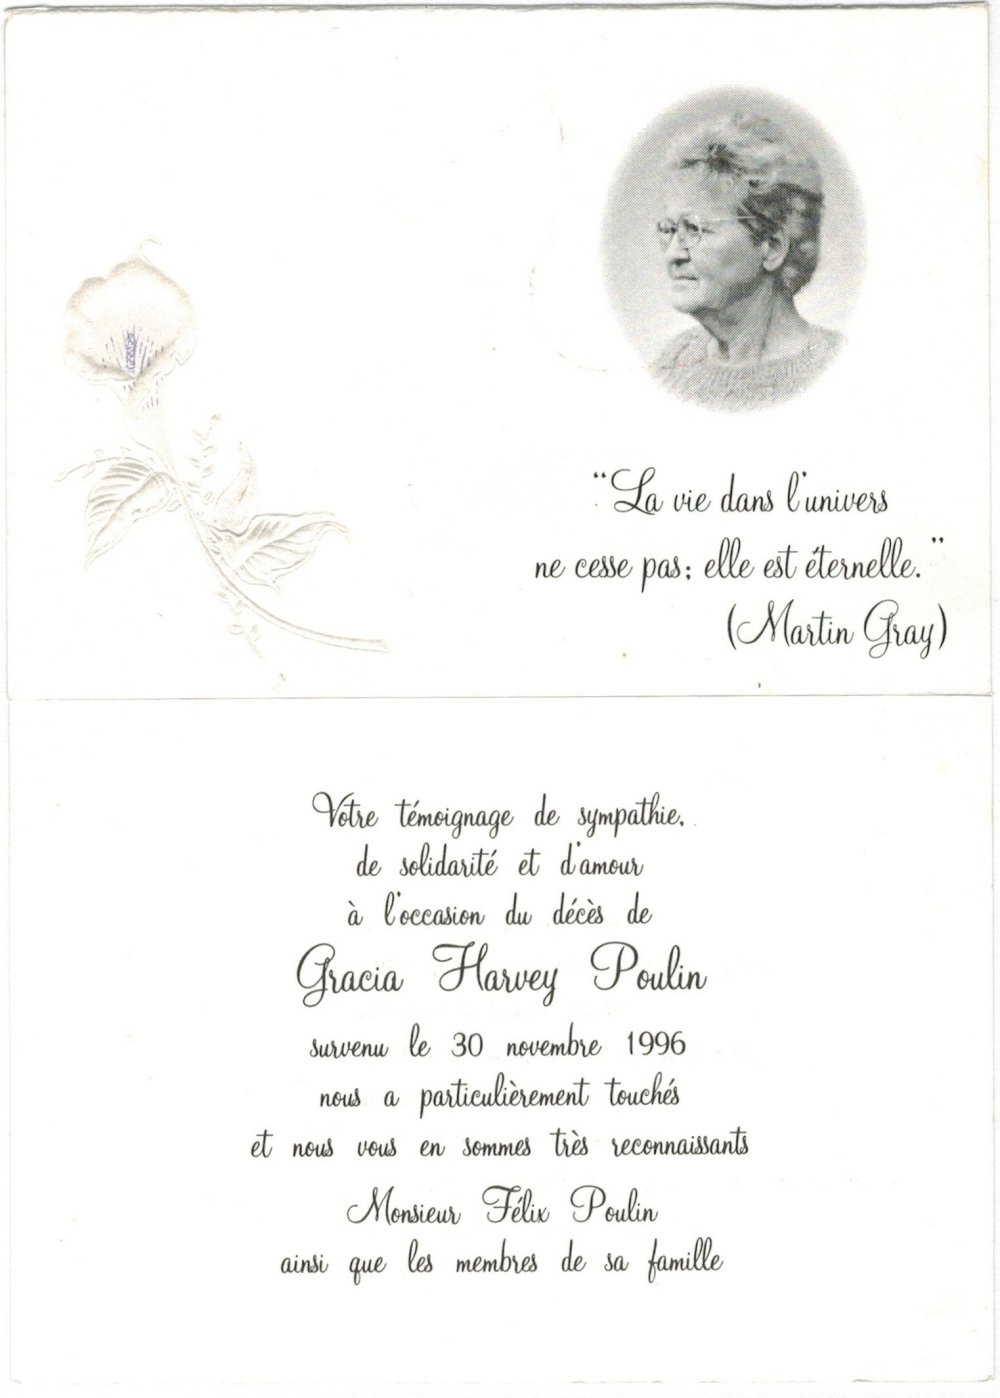 “La vie dans l'univers
ne cesse pas; elle est éternelle.”
(Martin Gray)
Votre témoignage de sympathie,
de solidarité et d'amour
à l'occasion du décès de
Gracia Harvey Poulin
survenu le 30 novembre 1996
nous a particulièrement touchés
et nous vous en sommes très reconnaissants
Monsieur Félix Poulin
ainsi que les membres de sa famille